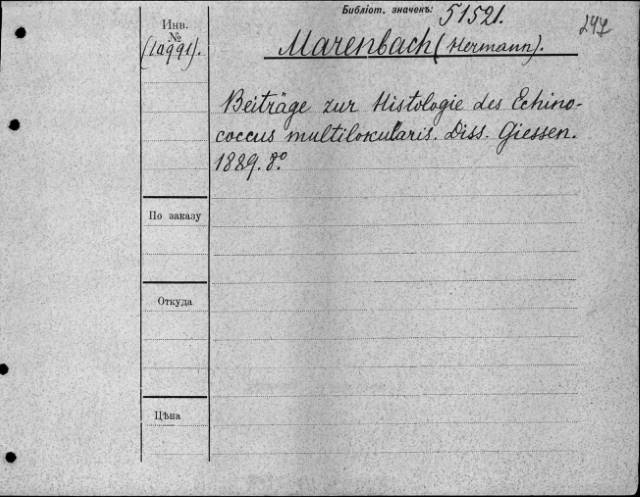 Библіот. значенъ: 51521.
247
Инв.
№
(10991).
Marenbach (Hermann).
Beiträge zur Histologie des Echino-
coccus multilokularis. Diss. Giessen.
1889. 8°
По заказу
Откуда
Цѣна